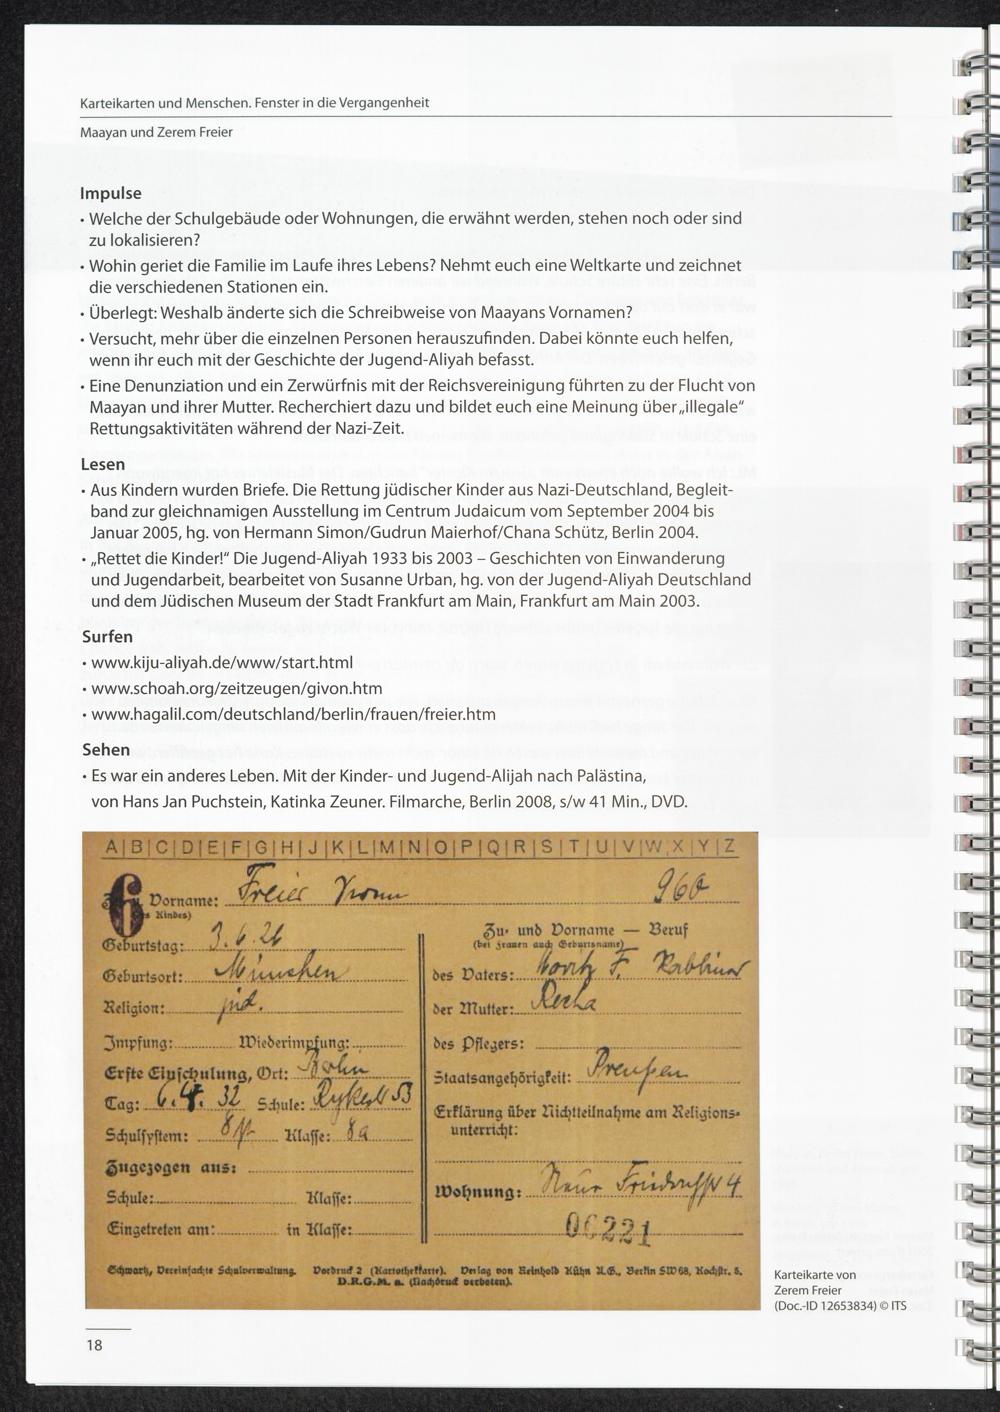 Karteikarten und Menschen. Fenster in die Vergangenheit
Maayan und Zerem Freier
Impulse
• Welche der Schulgebäude oder Wohnungen, die erwähnt werden, stehen noch oder sind
zu lokalisieren?
• Wohin geriet die Familie im Laufe ihres Lebens? Nehmt euch eine Weltkarte und zeichnet
die verschiedenen Stationen ein.
• Überlegt: Weshalb änderte sich die Schreibweise von Maayans Vornamen?
• Versucht, mehr über die einzelnen Personen herauszufinden. Dabei könnte euch helfen,
wenn ihr euch mit der Geschichte der Jugend-Aliyah befasst.
• Eine Denunziation und ein Zerwürfnis mit der Reichsvereinigung führten zu der Flucht von
Maayan und ihrer Mutter. Recherchiert dazu und bildet euch eine Meinung über „illegale“
Rettungsaktivitäten während der Nazi-Zeit.
Lesen
• Aus Kindern wurden Briefe. Die Rettung jüdischer Kinder aus Nazi-Deutschland, Begleit-
band zur gleichnamigen Ausstellung im Centrum Judaicum vom September 2004 bis
Januar 2005, hg. von Hermann Simon/Gudrun Maierhof/Chana Schütz, Berlin 2004.
• „Rettet die Kinder!“ Die Jugend-Aliyah 1933 bis 2003 – Geschichten von Einwanderung
und Jugendarbeit, bearbeitet von Susanne Urban, hg. von der Jugend-Aliyah Deutschland
und dem Jüdischen Museum der Stadt Frankfurt am Main, Frankfurt am Main 2003.
Surfen
• www.kiju-aliyah.de/www/start.html
• www.schoah.org/zeitzeugen/givon.htm
• www.hagalil.com/deutschland/berlin/frauen/freier.htm
Sehen
• Es war ein anderes Leben. Mit der Kinder- und Jugend-Alijah nach Palästina,
von Hans Jan Puchstein, Katinka Zeuner. Filmarche, Berlin 2008, s/w 41 Min., DVD.
A|B|C|D|E|F|G|H|J|K|L|M|N|O|P|Q|R|S|T|U|V|W|X|Y|Z
6 Vorname: Freier 960
Kindes)
Geburtstag: 3.6.26
Geburtsort: München
Religion: jüd.
Impfung: Wiederimpfung:
Erste Einschulung, Ort: Berlin
Tag: 6.4.32 Schule: Rykestr 53
Schulsystem: 8 Klasse: 8a
Zugezogen aus:
Schule: Klasse:
Eingetreten am: in Klasse:
Zu- und Vorname — Beruf
(bei Frauen auch Geburtsname)
des Vaters: Moritz F. Rabbiner
der Mutter: Recha
des Pflegers:
Staatsangehörigkeit: Preußen
Erklärung über Nichtteilnahme am Religions-
unterricht:
Wohnung: Neue Friedrichstr 4
06221
Schwartz, Vereinfachte Schulverwaltung. Vordruck 2 (Kartothekkarte). Verlag von Reinhold Kühn A.G., Berlin SW68, Kochstr. 5.
D.R.G.M. a. (Nachdruck verboten).
Karteikarte von
Zerem Freier
(Doc.-ID 12653834) © ITS
18